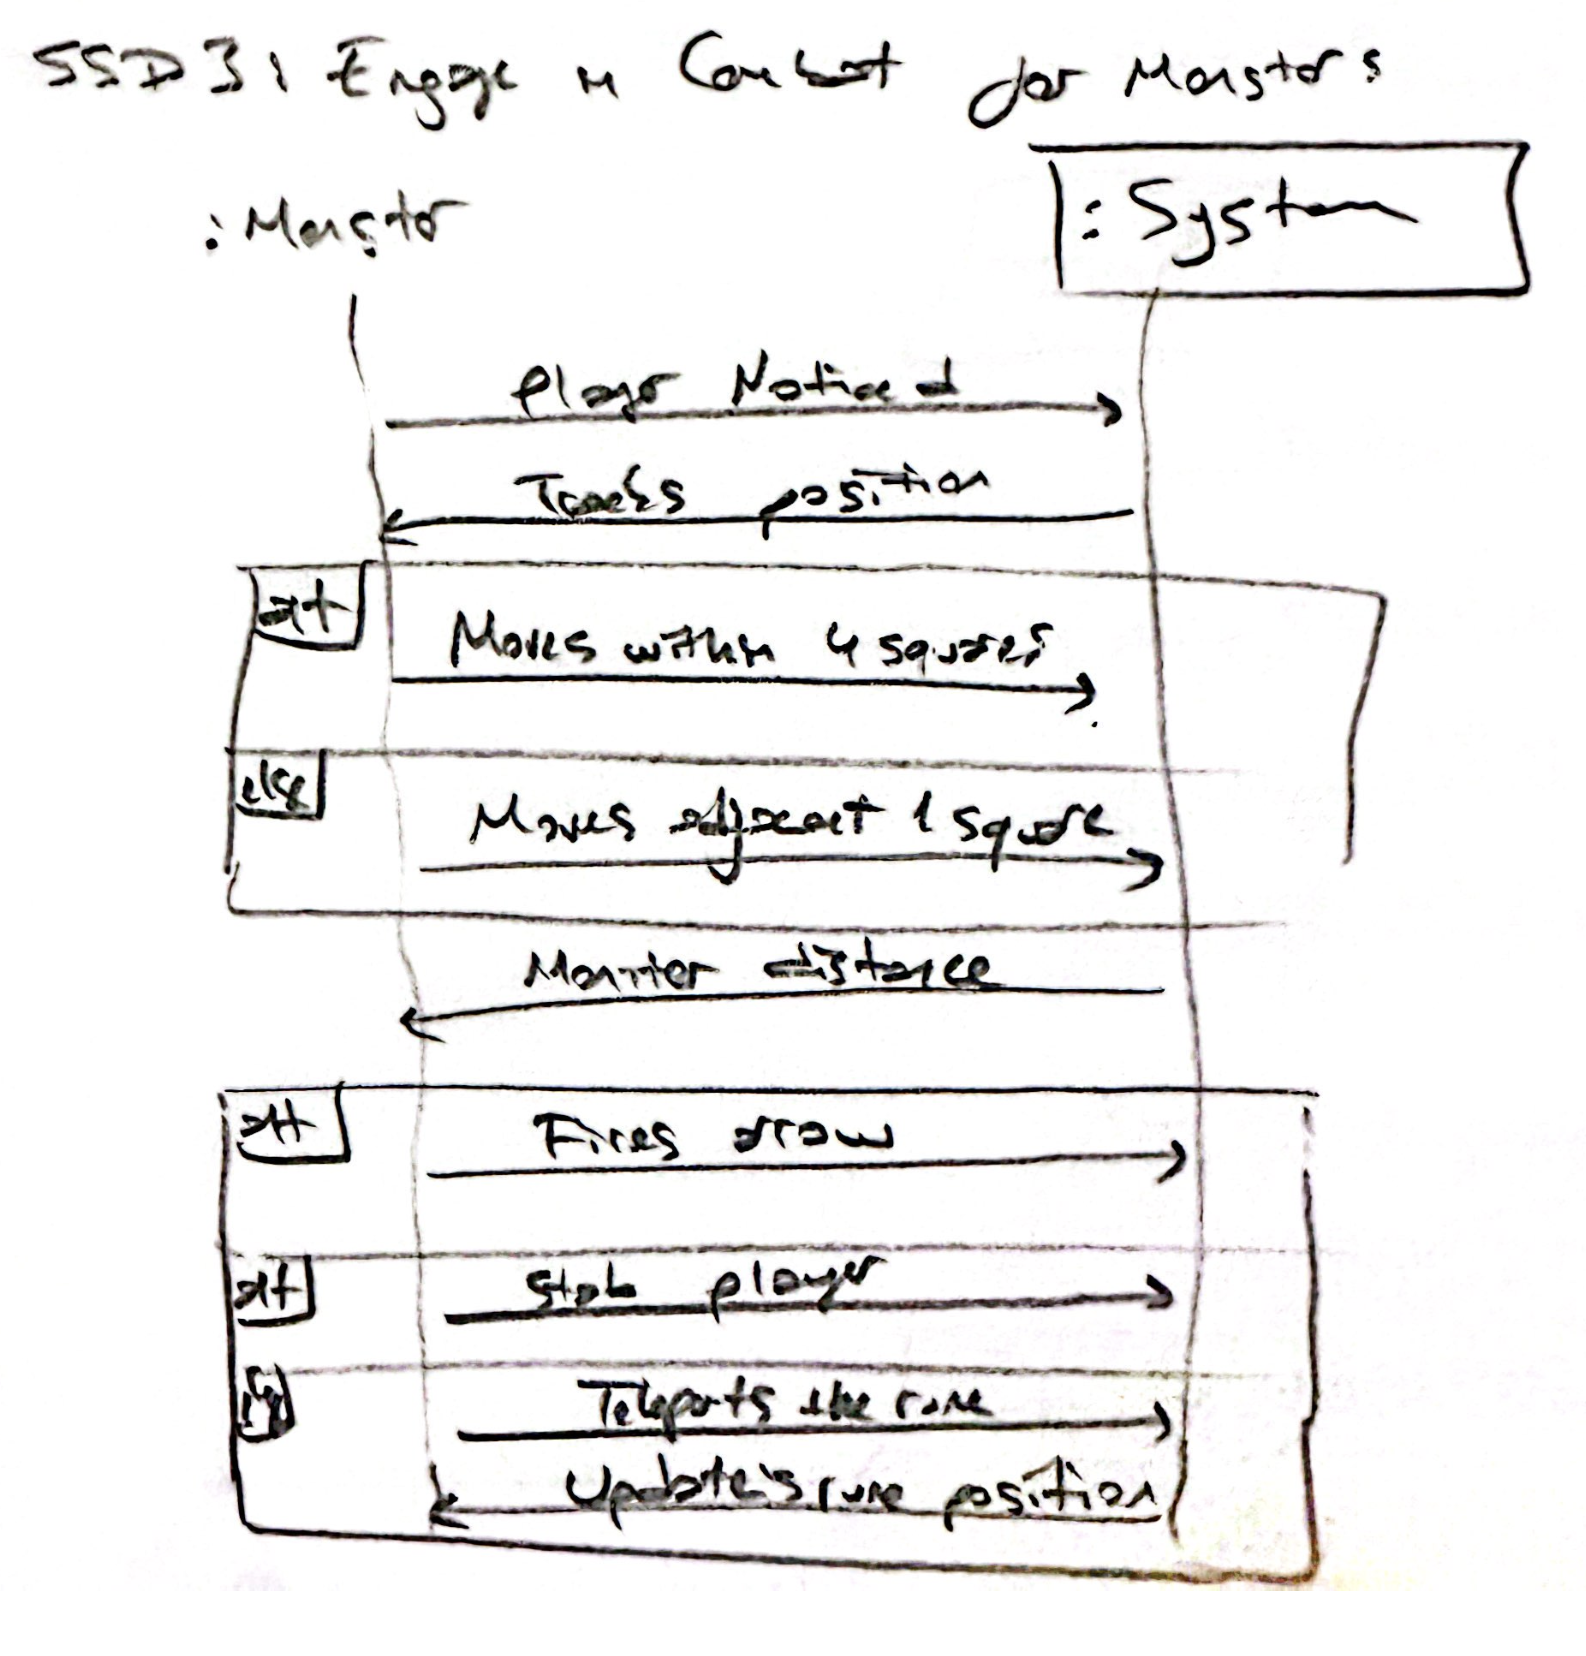 SSD 3: Engage in Combat for Monsters
:Monster
:System
Player Noticed
Tracks position
alt
Moves within 4 squares
else
Moves adjacent 1 square
Monitor distance
alt
Fires arrow
alt
Stab player
Teleports the rune
Update's rune position